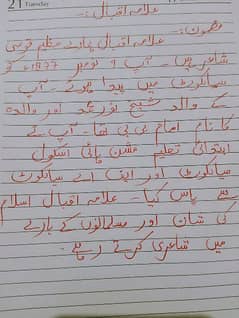 21 Tuesday
علامہ اقبال:۔
مضمون:۔
علامہ اقبال ہمارے عظیم قومی
شاعر ہیں۔ آپ 9 نومبر 1877ء کو
سیالکوٹ میں پیدا ہوئے۔ آپ
کے والد شیخ نور محمد اور والدہ
کا نام امام بی بی تھا۔ آپ نے
ابتدائی تعلیم مشن ہائی اسکول
سیالکوٹ اور ایف اے سیالکوٹ
سے پاس کیا۔ علامہ اقبال اسلام
کی شان اور مسلمانوں کے بارے
میں شاعری کرتے رہے۔